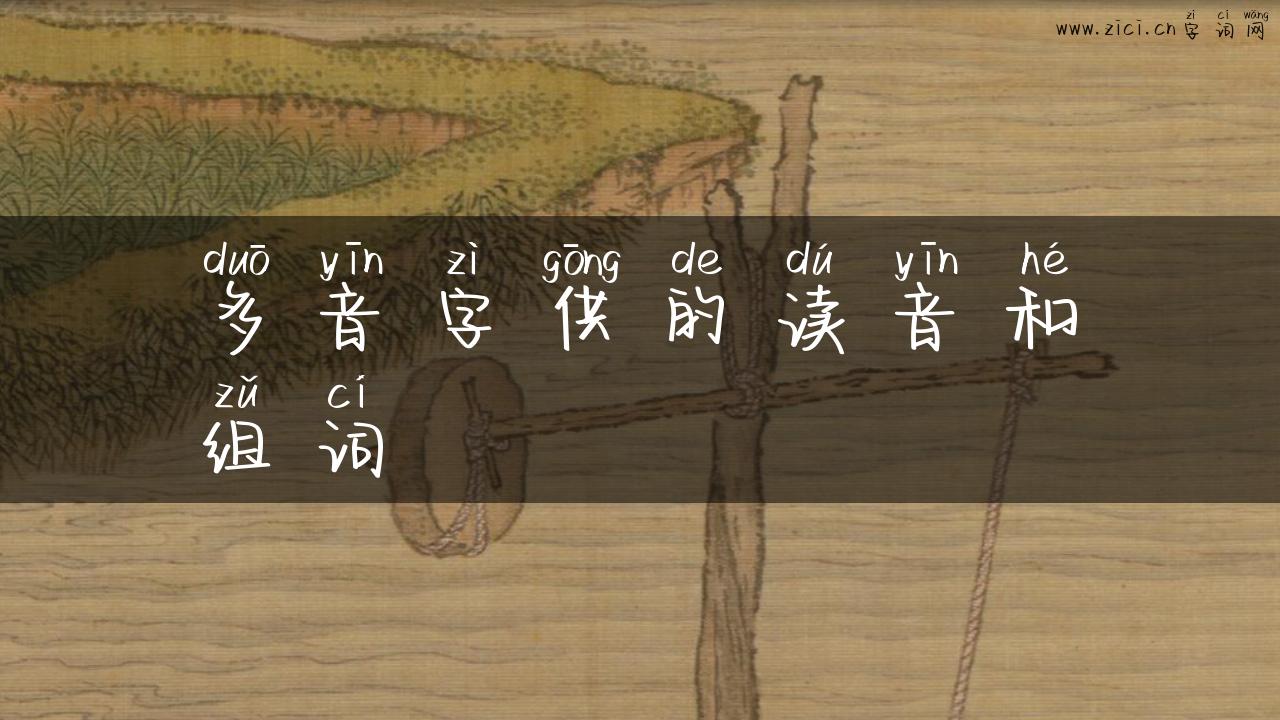 zì cí wǎng
www.zici.cn 字词网
duō yīn zì gōng de dú yīn hé
多音字供的读音和
zǔ cí
组词